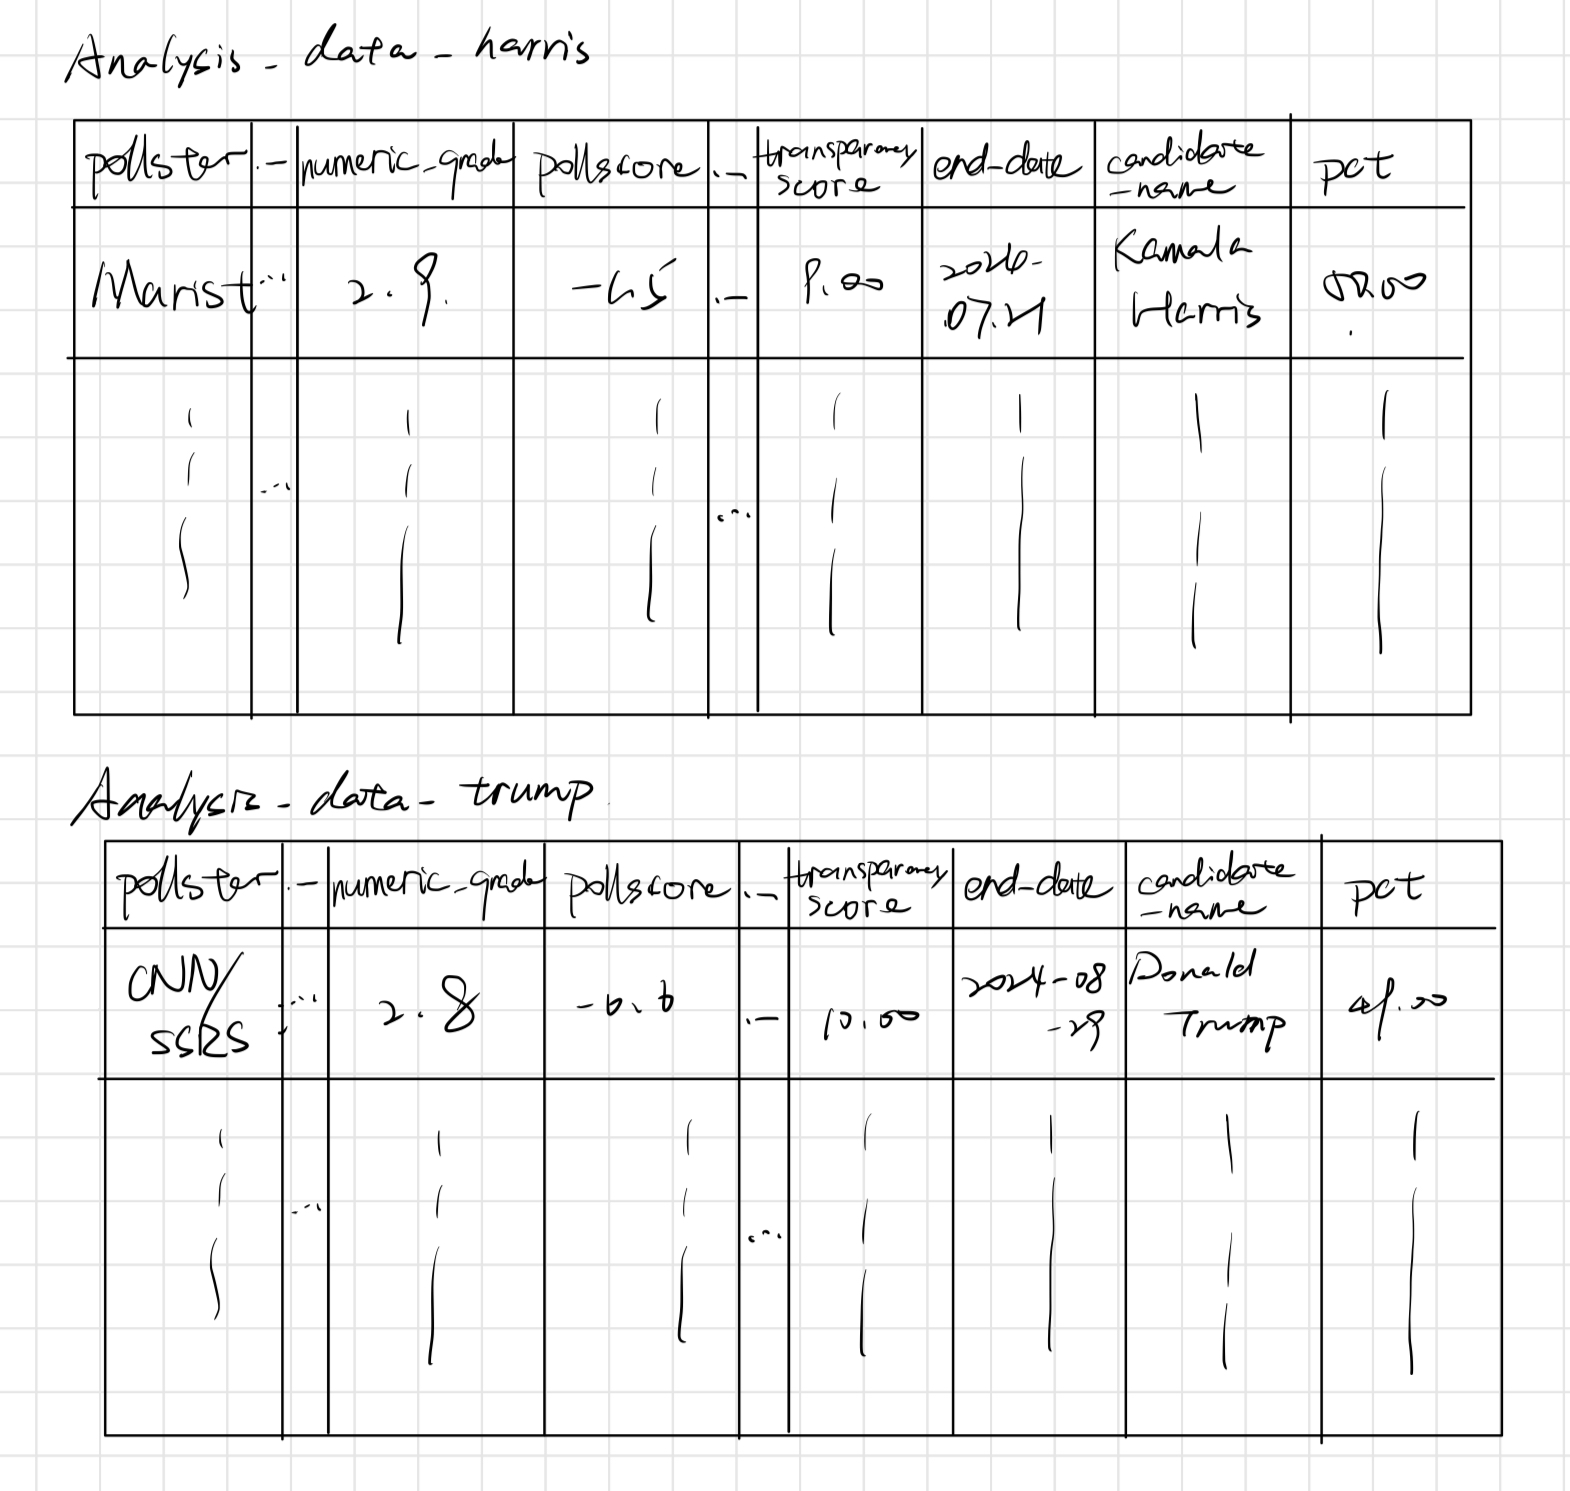 Analysis_data_harris
pollster ... numeric_grade pollscore ... transparency score end_date candidate_name pct
Marist ... 2.9 ... 9.00 Kamala Harris
... ...
Analysis_data_trump
pollster ... numeric_grade pollscore ... transparency score end_date candidate_name pct
CNN/SSRS ... 2.8 ... 10.00 2024-08-29 Donald Trump
... ...